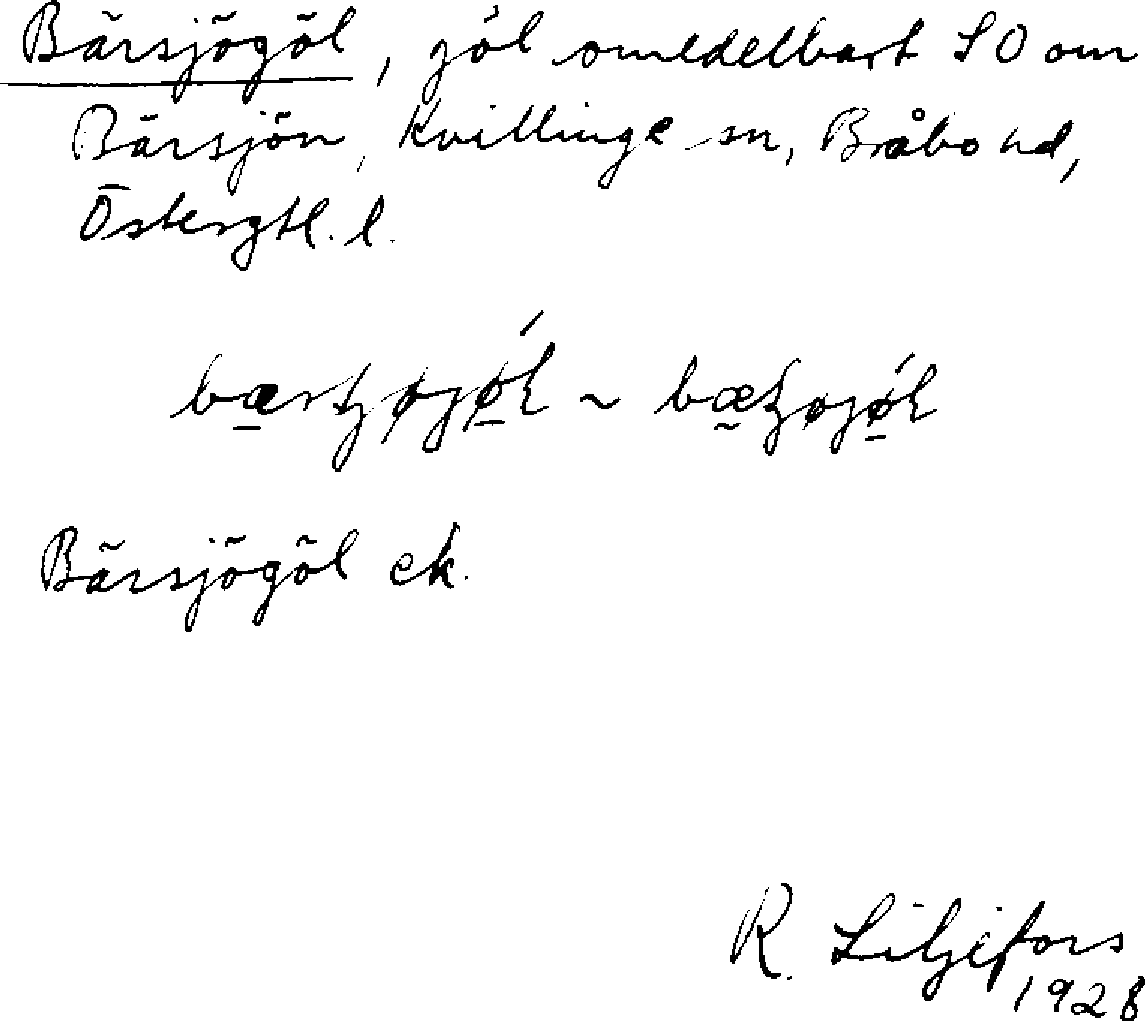 Bärsjögöl, göl omedelbart SO om
Bärsjön, Kvillinge sn, Bråbo hd,
Östergtl. l.
Bärsjögöl ek.
R. Liljefors
1928